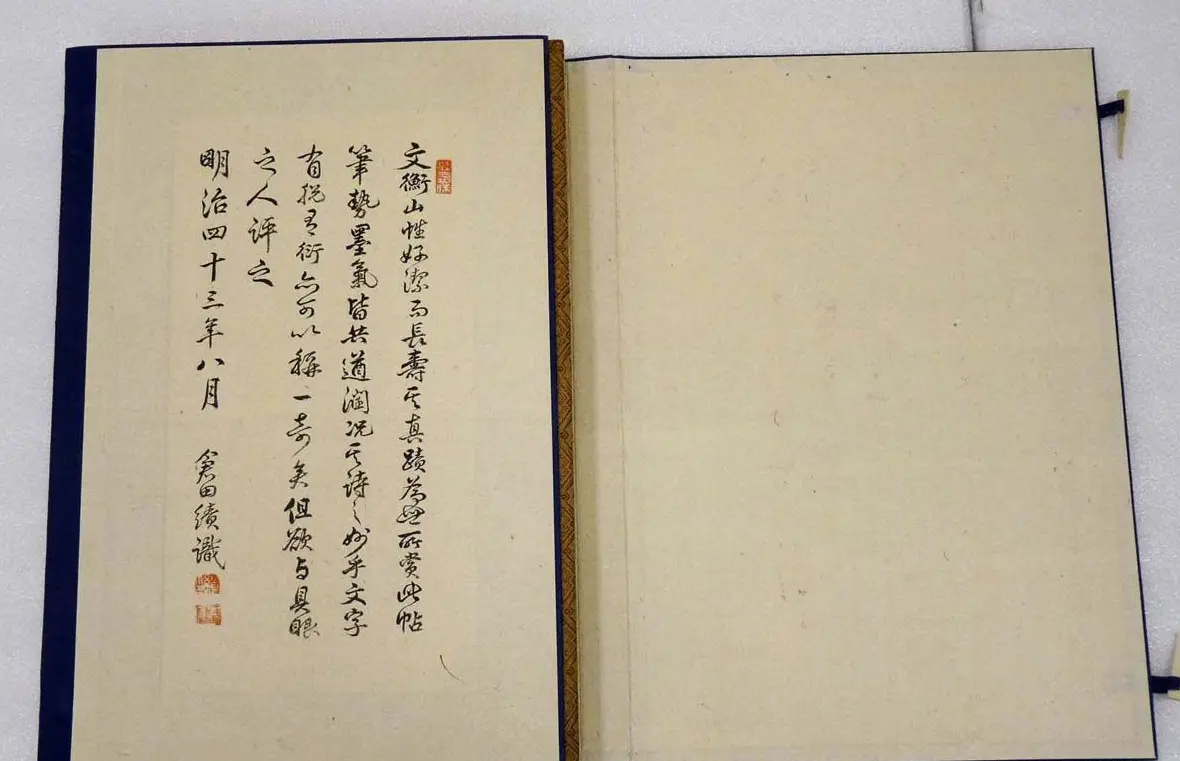 文衡山性好潔而長壽其真蹟為世所賞此帖
筆勢墨氣皆共遒潤況其詩之妙乎文字
有脱有衍亦可以稱一奇矣但欲與具眼
之人評之
明治四十三年八月 倉田績識